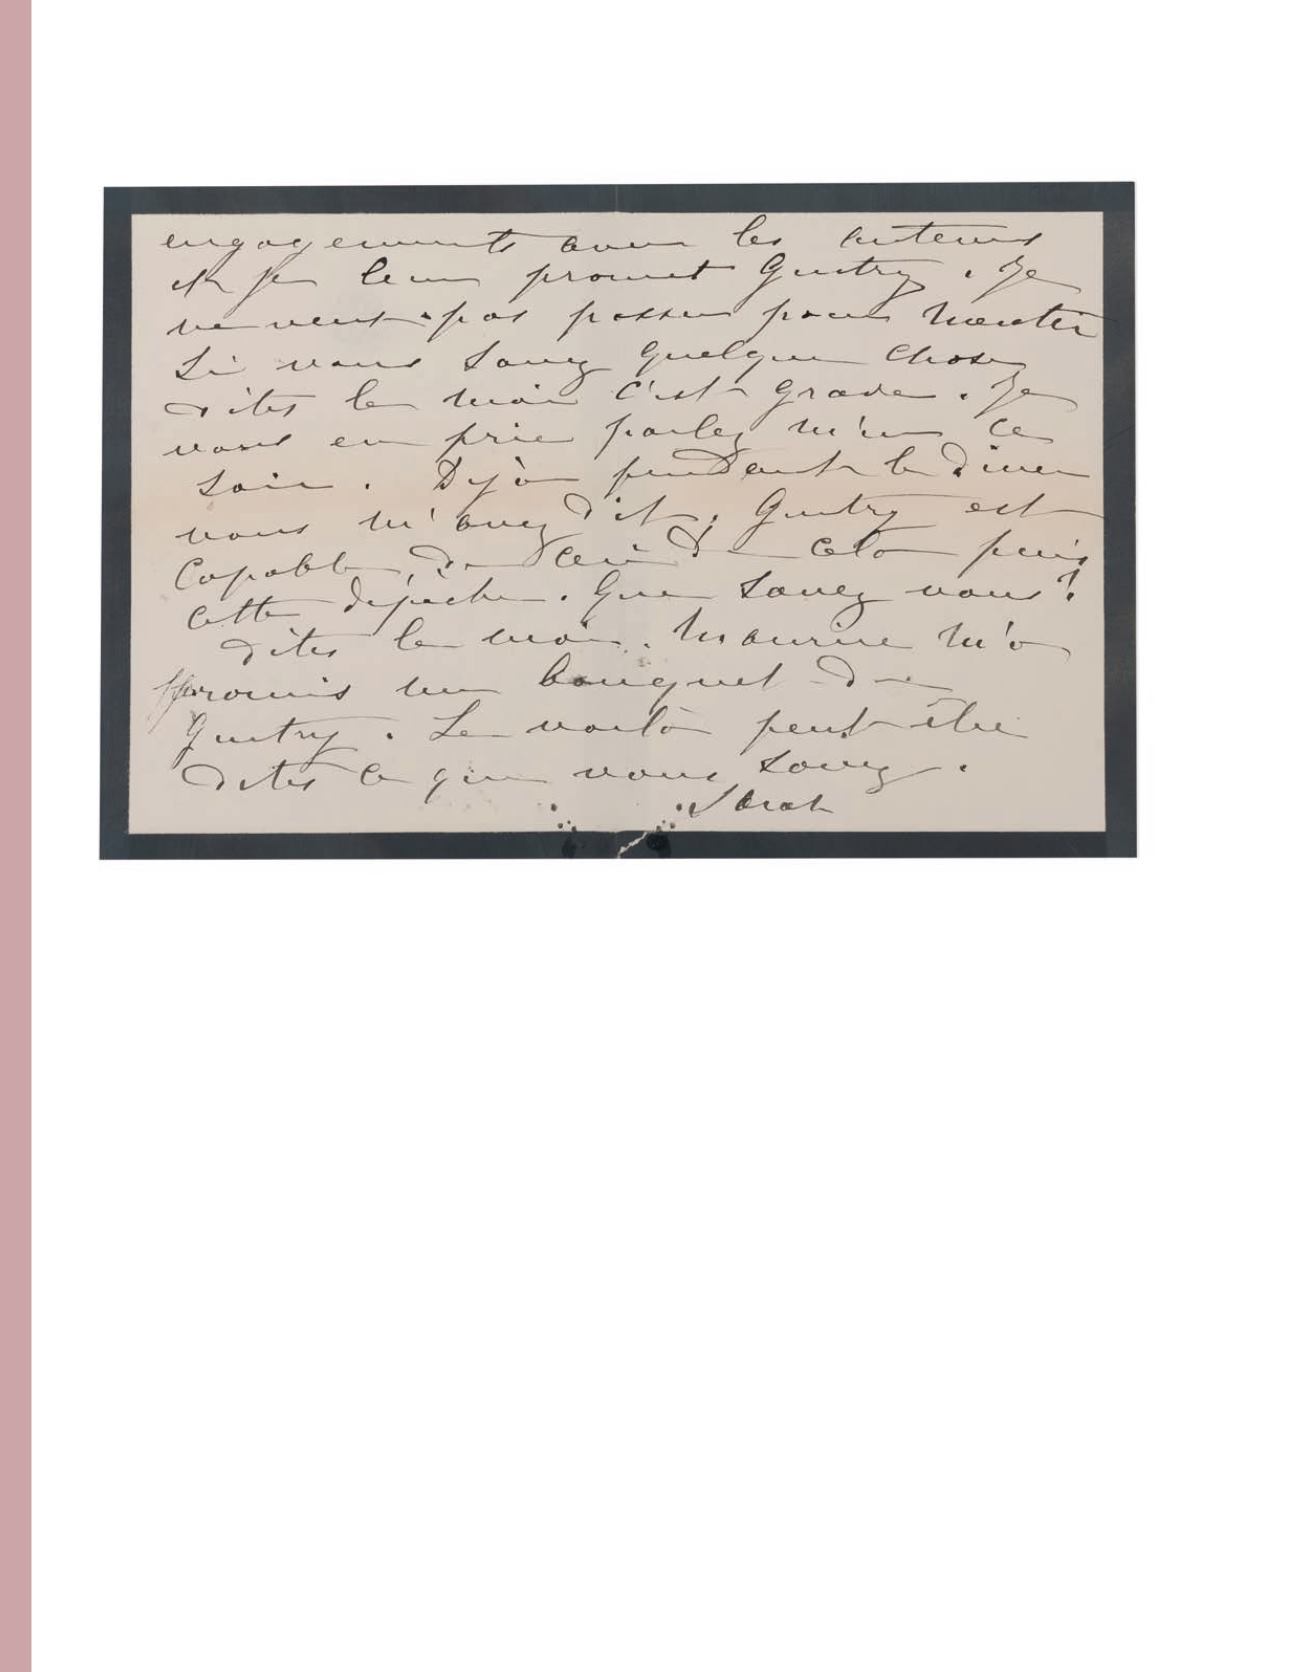 engagements avec les auteurs
et je leur promet Guitry. Je
ne veux pas passer pour mentir
Si vous savez quelque chose
dites le moi c'est grave. Je
vous en prie parlez m'en ce
soir. Déjà pendant le diner
vous m'avez dit. Guitry est
capable de ceci de cela puis
cette dépêche. Que savez vous?
dites le moi. Maurice m'a
promis un bouquet de
Guitry. Le voilà peut être
dites ce que vous savez.
Sarah